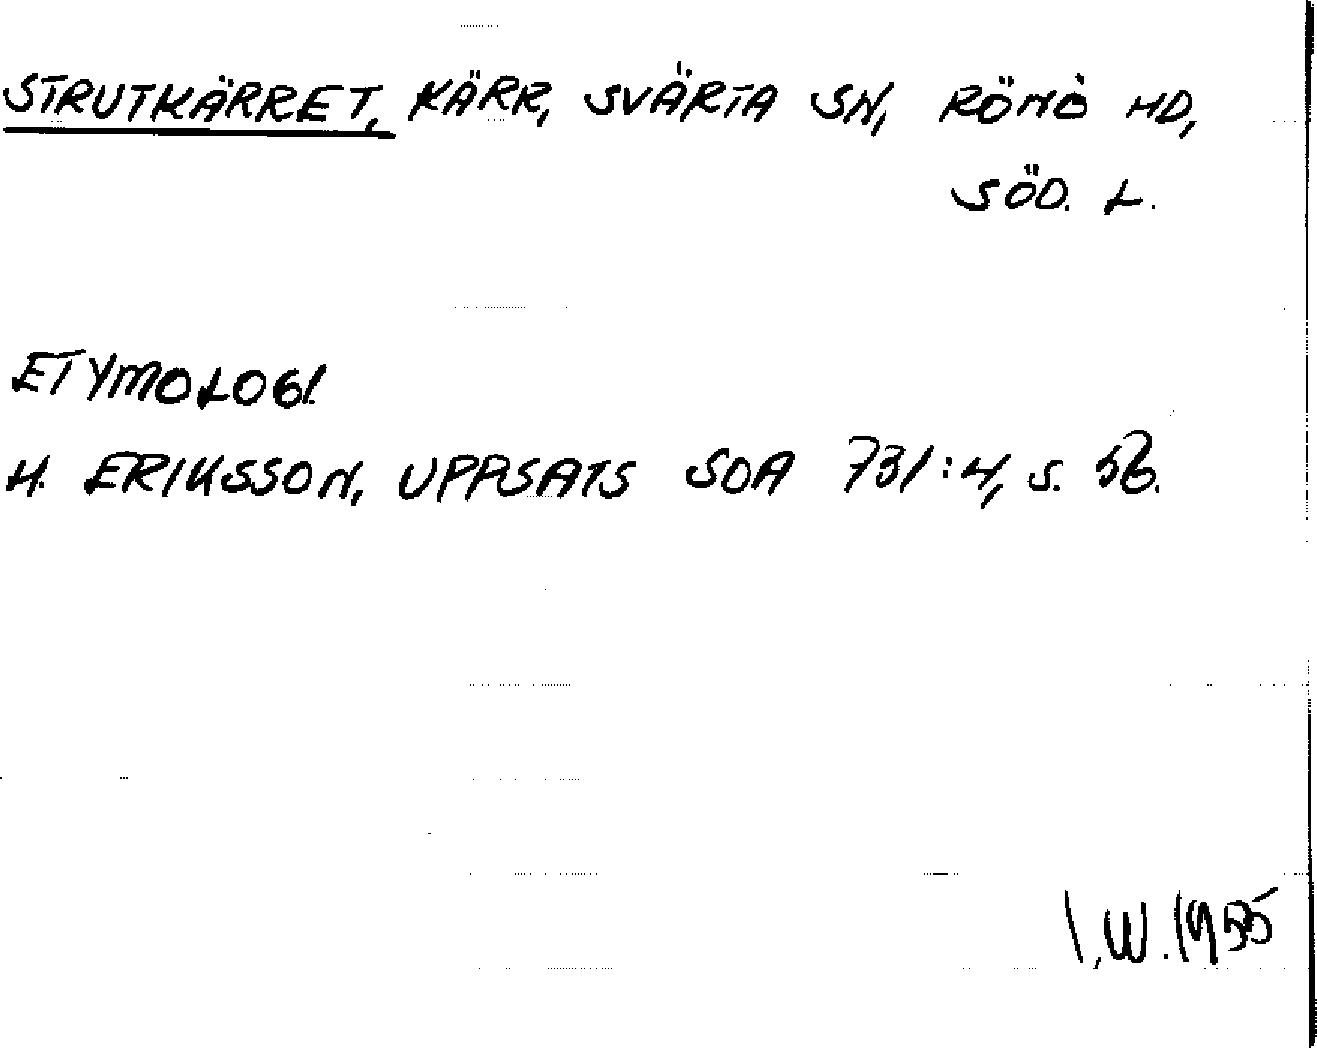 STRUTKÄRRET, KÄRR, SVÄRTA SN, RÖNÖ HD,
SÖD. L.
ETYMOLOGI
H. ERIKSSON, UPPSATS SOA 731:4, S. 56.
I.W. 1985